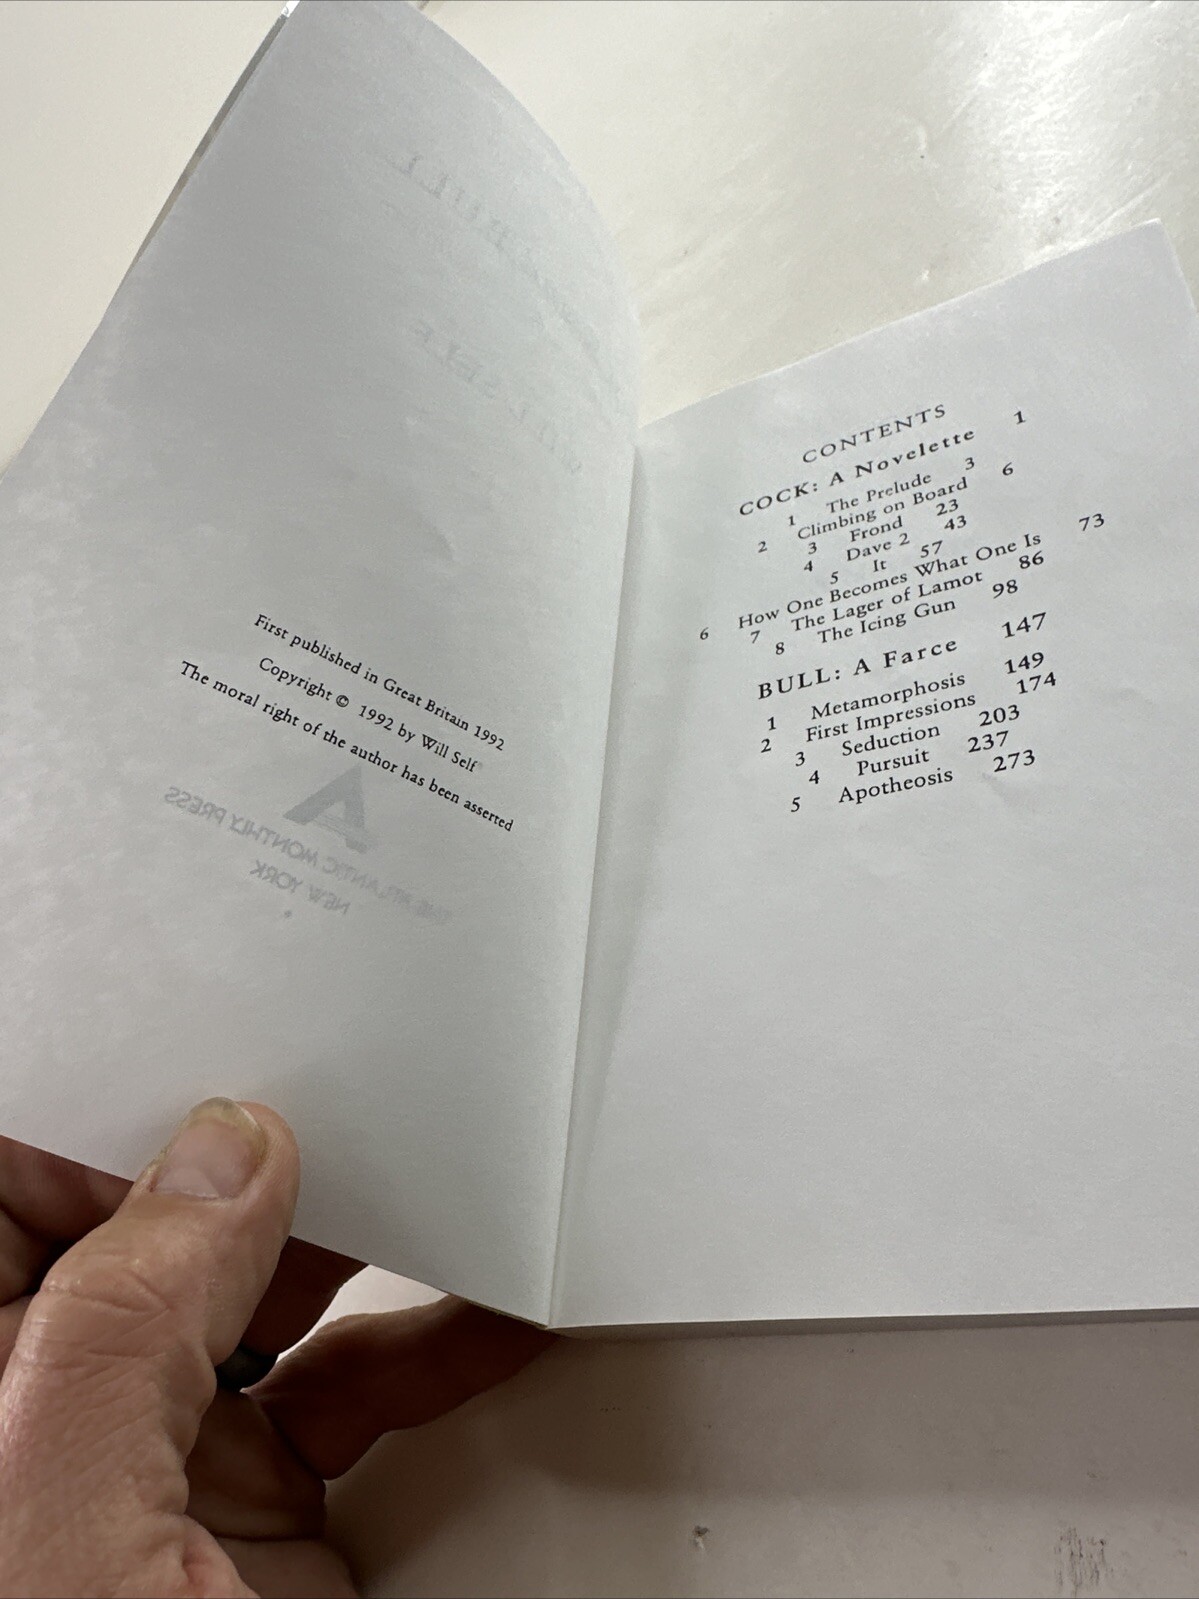 First published in Great Britain 1992
Copyright © 1992 by Will Self
The moral right of the author has been asserted
THE ATLANTIC MONTHLY PRESS
NEW YORK
CONTENTS
COCK: A Novelette 1
1 The Prelude 3
2 Climbing on Board 6
3 Frond 23
4 Dave 2 43
5 It 57
6 How One Becomes What One Is 73
7 The Lager of Lamot 86
8 The Icing Gun 98
BULL: A Farce 147
1 Metamorphosis 149
2 First Impressions 174
3 Seduction 203
4 Pursuit 237
5 Apotheosis 273